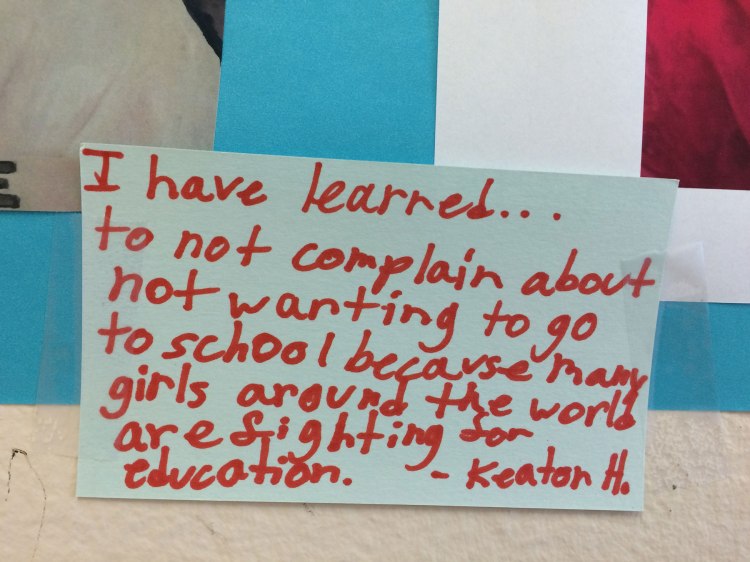 I have learned...
to not complain about
not wanting to go
to school because many
girls around the world
are fighting for
education. - Keaton H.